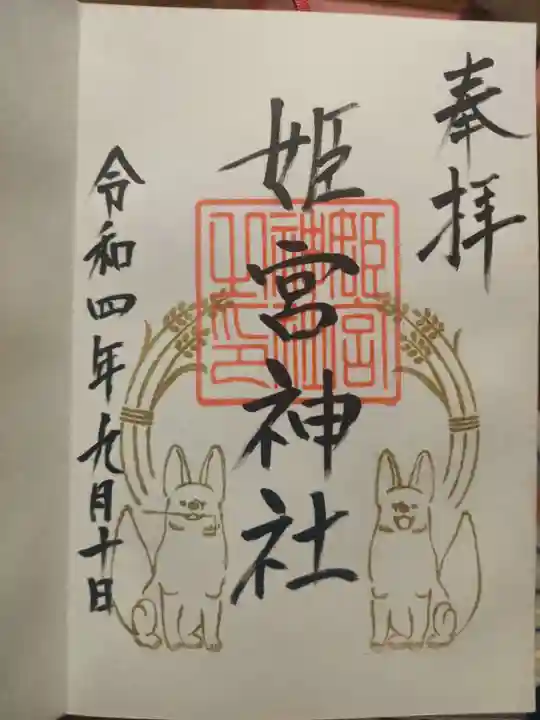 奉拝
姫宮神社
姫宮
神社
之印
令和四年九月十日